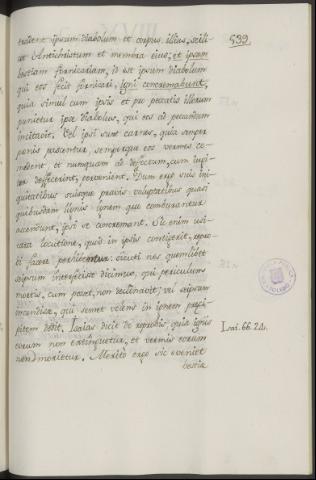 539
tradent ipsum diabolum et corpus illius, scili-
cet Antichristum et membra eius; et ipsam
bestiam fornicariam, id est ipsum diabolum
qui eos fecit fornicari, igni concremabunt,
quia simul cum ipsis et pro peccatis illorum
punietur ipse diabolus, qui eos ad peccandum
incitavit. Vel ipsi sunt carnes, quia semper
penis pascentur, semperque eos vermes co-
medent et numquam ad defectum, cum
deffecerint, pervenient. Dum ergo suis ini-
quitatibus suisque pravis voluptatibus quasi
quibusdam lignis ignem quo comburantur
accendunt, ipsi se concremant. Sic enim usi-
tata locutione, quod in ipsis contigerit, repro-
bi facere perhibentur. sicuti nos quemlibet
seipsum interfecisse dicimus, qui periculum
mortis, cum posset, non declinavit; vel seipsum
incendisse, qui semet volens in ignem preci-
pitem dedit. Isaias dicit de reprobis, quia ignis
eorum non extinguetur, et vermis eorum
non morietur. Merito ergo sic eveniet
bestia
Isai. 66. 24.